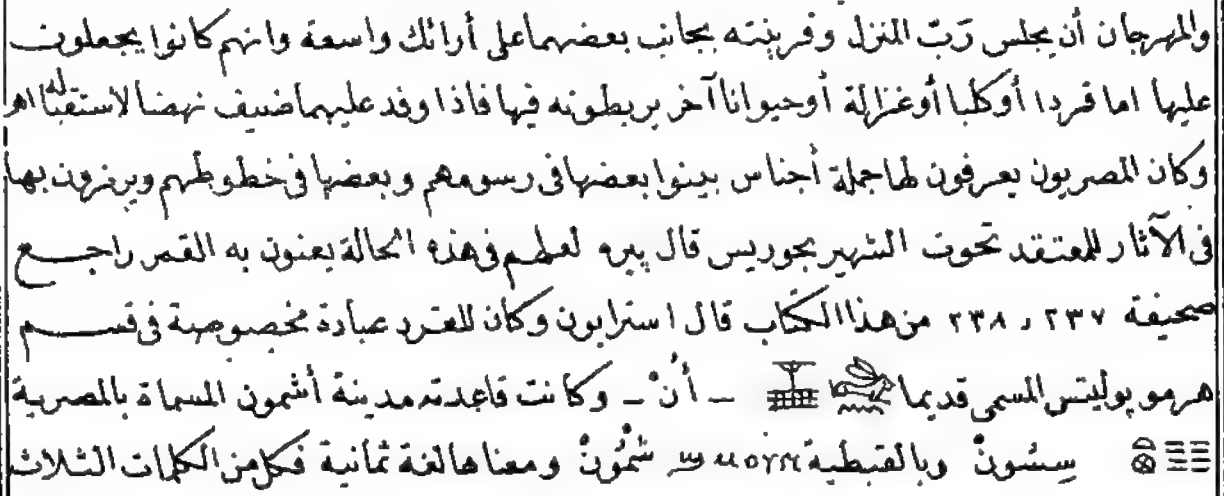 والمهرجان أن يجلس رَبّ المنزل وقرينته بجانب بعضهما على أرائك واسعة وانهم كانوا يجعلون
عليها اما قردا أوكلبا أوغزالة أوحيوانا آخر يربطونه فيها فاذا وفد عليهما ضيف نهضا لاستقباله اهـ
وكان المصريون يعرفون لها جملة أجناس بينوا بعضها فى رسومهم وبعضها فى خطوطهم ويرمزون بها
فى الآثار للمعتقد تحوت الشهير بجوريس قال پيره لعلهم فى هذه الحالة يعنون به القمر راجع
صحيفة ٢٣٧ و ٢٣٨ من هذا الكتاب قال استرابون وكان للقرد عبادة مخصوصة فى قسم
هرموپوليتس المسمى قديما ـ أُنْ ـ وكانت قاعدته مدينة أشمون المسماة بالمصرية
سِسُونْ وبالقبطية ϣⲙⲟⲩⲛ شْمُونْ ومعناها لغة ثمانية فكل من الكلمات الثلاث